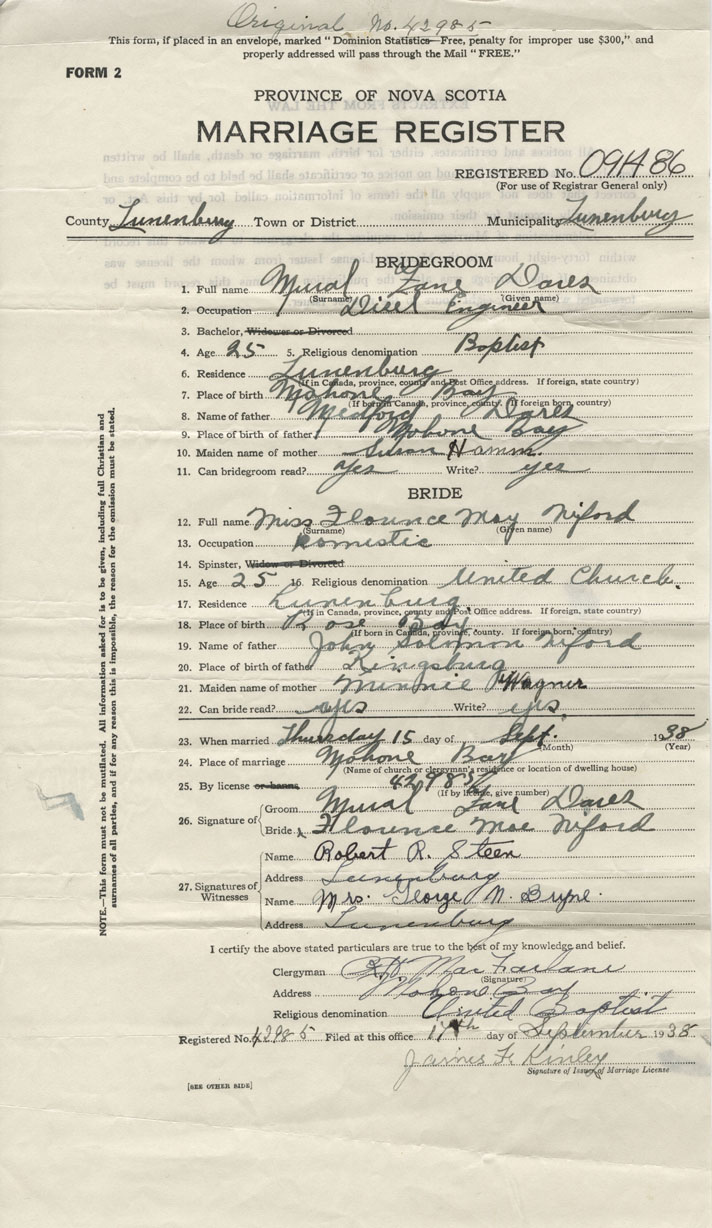 Original No. 42985
This form, if placed in an envelope, marked "Dominion Statistics—Free, penalty for improper use $300," and
properly addressed will pass through the Mail "FREE."
FORM 2
PROVINCE OF NOVA SCOTIA
MARRIAGE REGISTER
REGISTERED No. 091486
(For use of Registrar General only)
County Lunenburg Town or District Municipality Lunenburg
BRIDEGROOM
1. Full name Mural Zane Dares
(Surname) (Given name)
2. Occupation Disel Engineer
3. Bachelor, Widower or Divorced
4. Age 25 5. Religious denomination Baptist
6. Residence Lunenburg
(If in Canada, province, county and Post Office address. If foreign, state country)
7. Place of birth Mahone Bay
(If born in Canada, province, county. If foreign born, country)
8. Name of father Medford Dares
9. Place of birth of father Mahone Bay
10. Maiden name of mother Susan Hamm.
11. Can bridegroom read? yes Write? yes
BRIDE
12. Full name Miss Florence May Niford
(Surname) (Given name)
13. Occupation Domestic
14. Spinster, Widow or Divorced
15. Age 25 16. Religious denomination United Church.
17. Residence Lunenburg
(If in Canada, province, county and Post Office address. If foreign, state country)
18. Place of birth Rose Bay
(If born in Canada, province, county. If foreign born, country)
19. Name of father John Solomon Niford
20. Place of birth of father Kingsburg
21. Maiden name of mother Minnie Wagner
22. Can bride read? yes Write? yes
23. When married Thursday 15 day of Sept. 1938
(Month) (Year)
24. Place of marriage Mahone Bay
(Name of church or clergyman's residence or location of dwelling house)
25. By license or banns 42985
(If by license, give number)
26. Signature of Groom Mural Zane Dares
Bride Florence Mae Niford
27. Signatures of Witnesses
Name Robert R. Steen
Address Lunenburg
Name Mrs. George N. Byrne.
Address Lunenburg
I certify the above stated particulars are true to the best of my knowledge and belief.
Clergyman MacFarlane
(Signature)
Address Mahone Bay
Religious denomination United Baptist
Registered No. 42985 Filed at this office 17th day of September 1938
James F. Kinley
Signature of Issuer of Marriage License
[SEE OTHER SIDE]
NOTE.—This form must not be mutilated. All information asked for is to be given, including full Christian and
surnames of all parties, and if for any reason this is impossible, the reason for the omission must be stated.